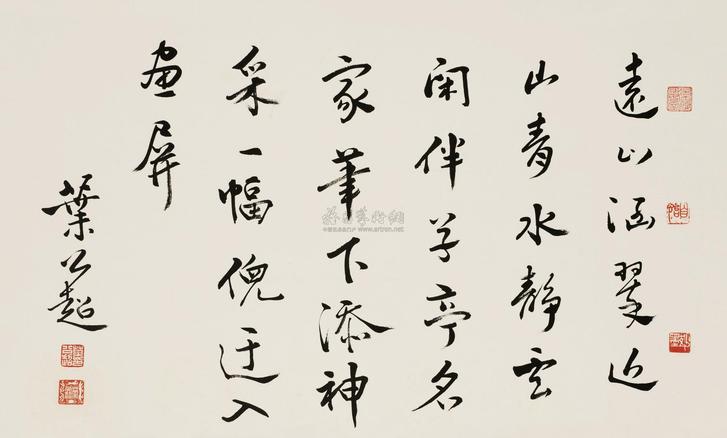 遠山涵翠近
山青水靜雲
閑伴草亭名
家筆下添神
采一幅倪迂入
畫屏
葉公超
雅昌藝術網
www.artron.net